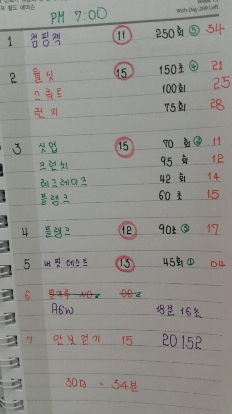 PM 7:00
1 점핑잭 11 250회 ⑤ 34
2 월싯 15 150초 ④ 21
스쿼트 100회 25
런지 75회 28
3 싯업 15 70회 ② 11
크런치 95회 12
레그레이즈 42회 14
플랭크 60초 15
4 플랭크 12 90초 ③ 17
5 버핏테스트 13 45회 ① 04
6
AGW 18분 16초
7 만보걷기 15 20152
30일 - 34분